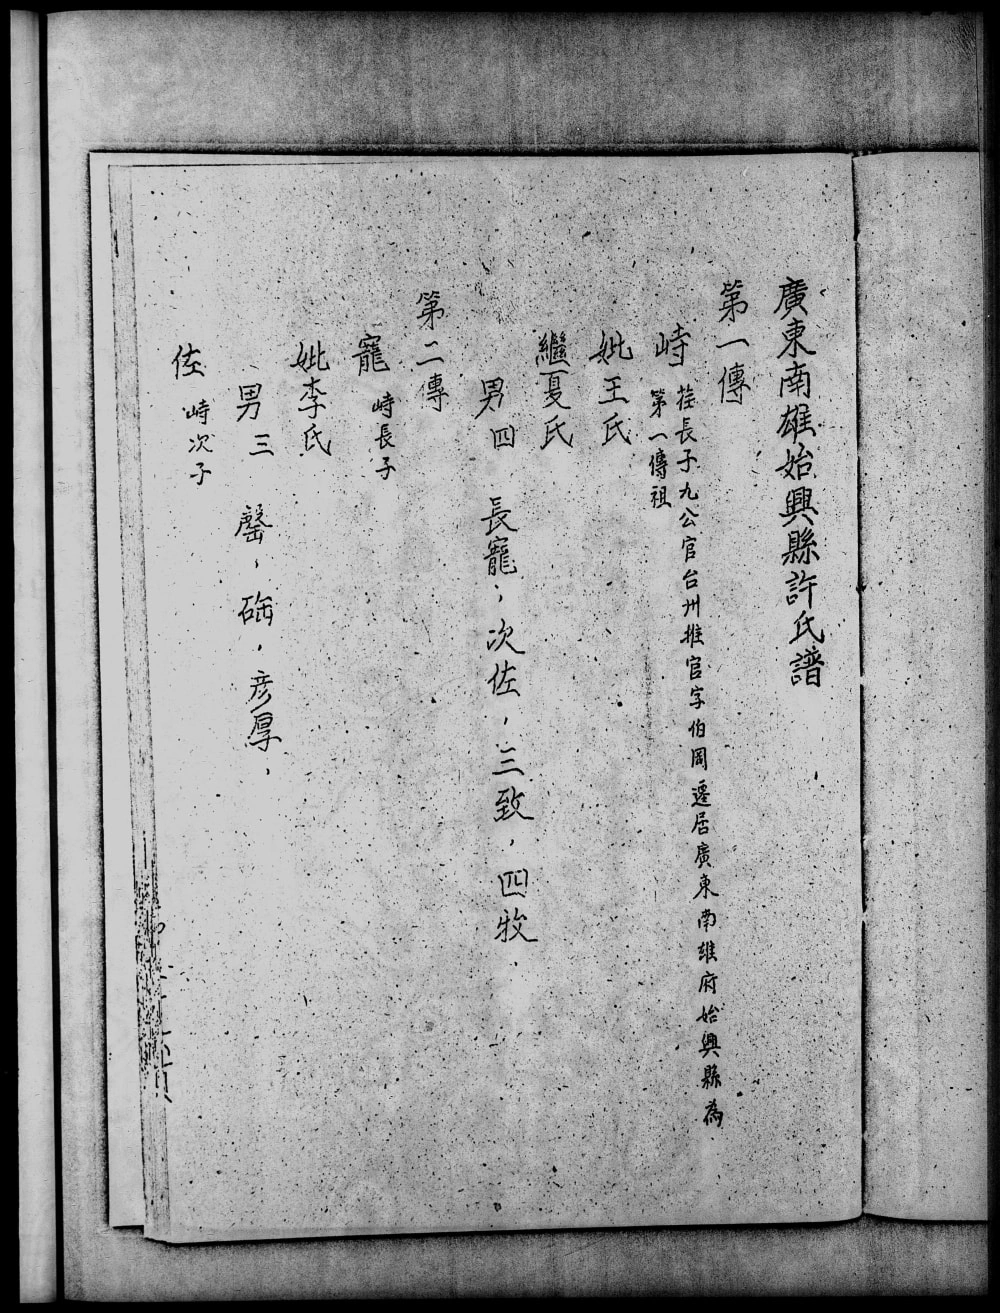 廣東南雄始興縣許氏譜
第一傳
峙 荏長子九公官台州推官字伯岡遷居廣東南雄府始興縣為
第一傳祖
妣王氏
繼夏氏
男四 長寵，次佐，三致，四牧．
第二傳
寵 峙長子
妣李氏
男三 罄，硲，彥厚，
佐 峙次子